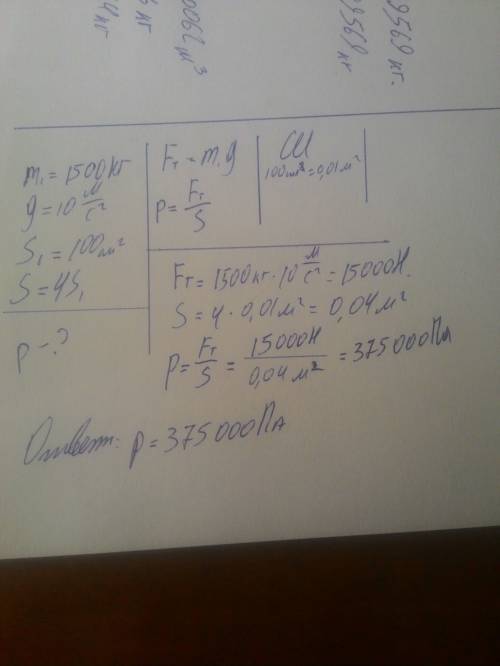 9569 кг.
99569 кг
0062 м³
кг
кг
m₁ = 1500 кг
g = 10 м/с²
S₁ = 100 см²
S = 4S₁
p - ?
Fт = m₁g
p = Fт/S
СИ
100 см² = 0,01 м²
Fт = 1500 кг · 10 м/с² = 15000 Н.
S = 4 · 0,01 м² = 0,04 м²
p = Fт/S = 15000 Н/0,04 м² = 375000 Па
Ответ: p = 375 000 Па